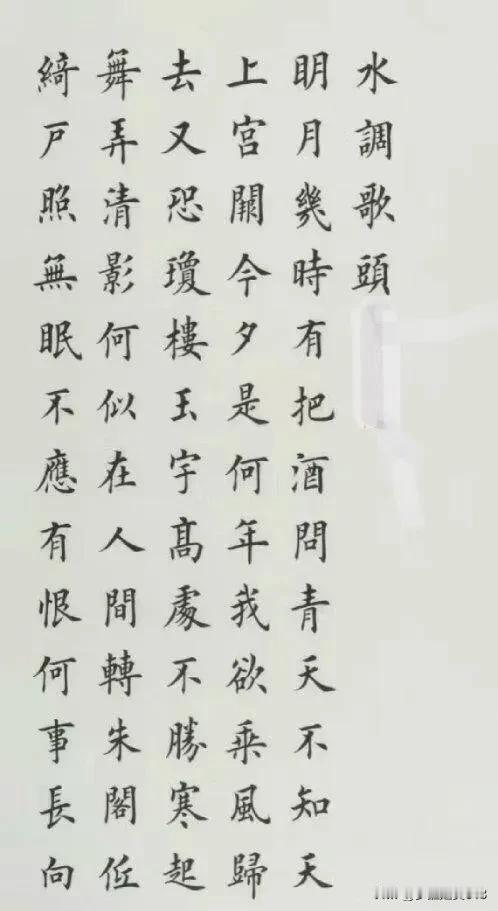 水調歌頭
明月幾時有把酒問青天不知天
上宮闕今夕是何年我欲乘風歸
去又恐瓊樓玉宇高處不勝寒起
舞弄清影何似在人間轉朱閣低
綺戶照無眠不應有恨何事長向